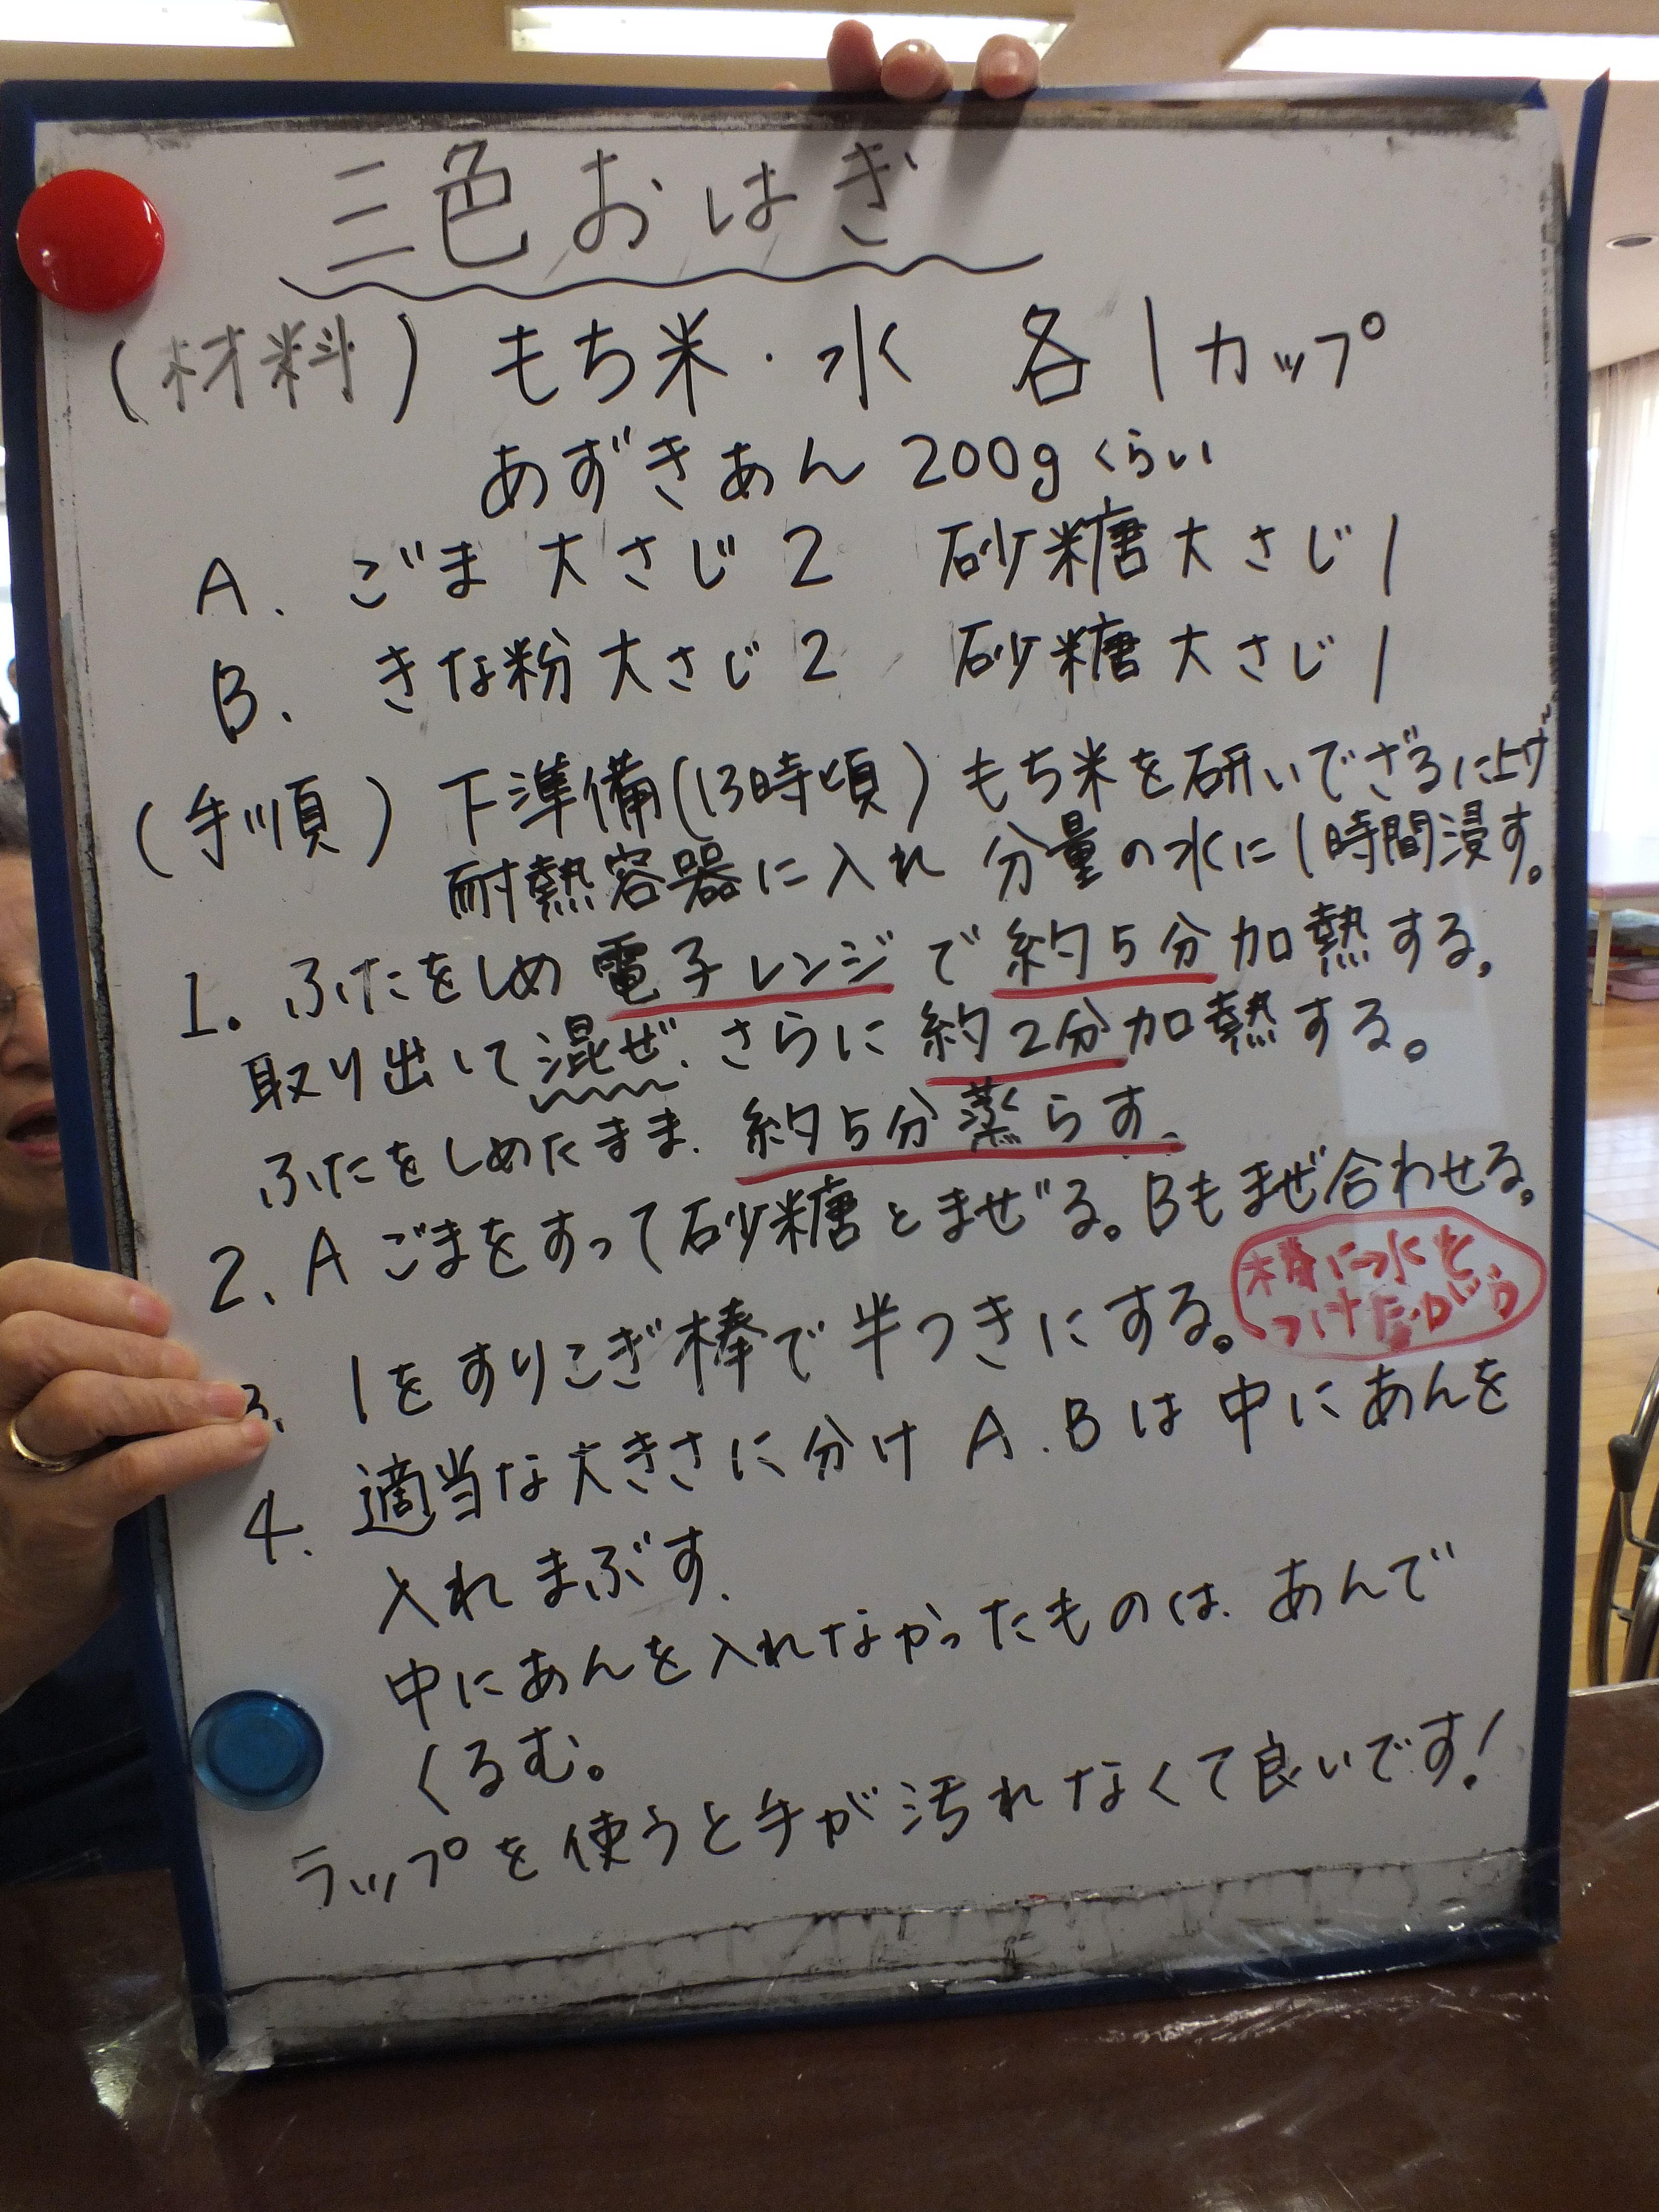 三色おはぎ
(材料) もち米・水 各1カップ
あずきあん 200gくらい
A. ごま 大さじ2 砂糖大さじ1
B. きな粉大さじ2 砂糖大さじ1
(手順) 下準備(13時頃) もち米を研いでざるに上げ
耐熱容器に入れ 分量の水に1時間浸す。
1. ふたをしめ電子レンジで約5分加熱する。
取り出して混ぜ、さらに約2分加熱する。
ふたをしめたまま、約5分蒸らす。
2. A ごまをすって砂糖とまぜる。Bもまぜ合わせる。
3. 1をすりこぎ棒で半つきにする。
棒に水を
つけながら
4. 適当な大きさに分け A.Bは中にあんを
入れまぶす。
中にあんを入れなかったものは、あんで
くるむ。
ラップを使うと手が汚れなくて良いです!